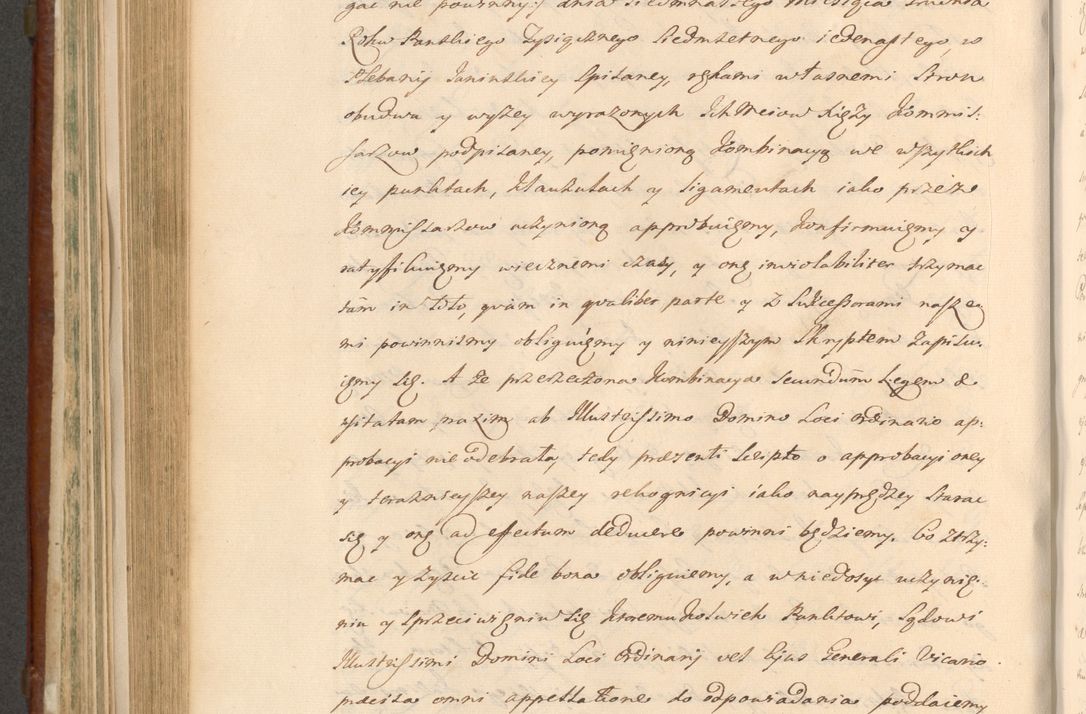 gać nie powinny:/ dnia siedmnastego Miesiąca Grudnia
Roku Pańskiego Tysiącznego Siedmsetnego iedenastego, w
Plebanij Janinskiey spisaney, rękami własnemi Stron
obudwu y wyżey wyrażonych Ich Mciow Xięży Kommis:
sarzow podpisaney, pomienioną Kombinacyą we wszytkich
iey punktach, Klauzulach y ligamentach iako przez
Kommissarzow uczynioną approbuiemy, Konfirmuiemy y
ratyfikuiemy wiecznemi czasy, y onę inviolabiliter trzymać
tàm in Toto, quàm in qualibet parte y z Sukcessorami nasze
mi powinnismy obliguiemy y ninieyszym Skryptem zapisu:
iemy się. A że przerzeczona Kombinacya secundùm Legem &
usitatam praxim ab Illustrissimo Domino Loci Ordinario ap:
probacyi nie odebrała, tedy praesenti Scripto o approbacyi oney
y teraznieyszey naszey rekognicyi iako nayprędzey starać
się y onę ad effectum deducere powinni będziemy. Co ztrzy:
mać y ziścić fide bona obliguiemy, a w niedosyć uczynie:
niu y sprzeciwieniu się ktoremukolwiek Punktowi, Sądowi
Illustrissimi Domini Loci Ordinarij vel Ejus Generali Vicario
praecisa omni appellatione do odpowiadania poddaiemy